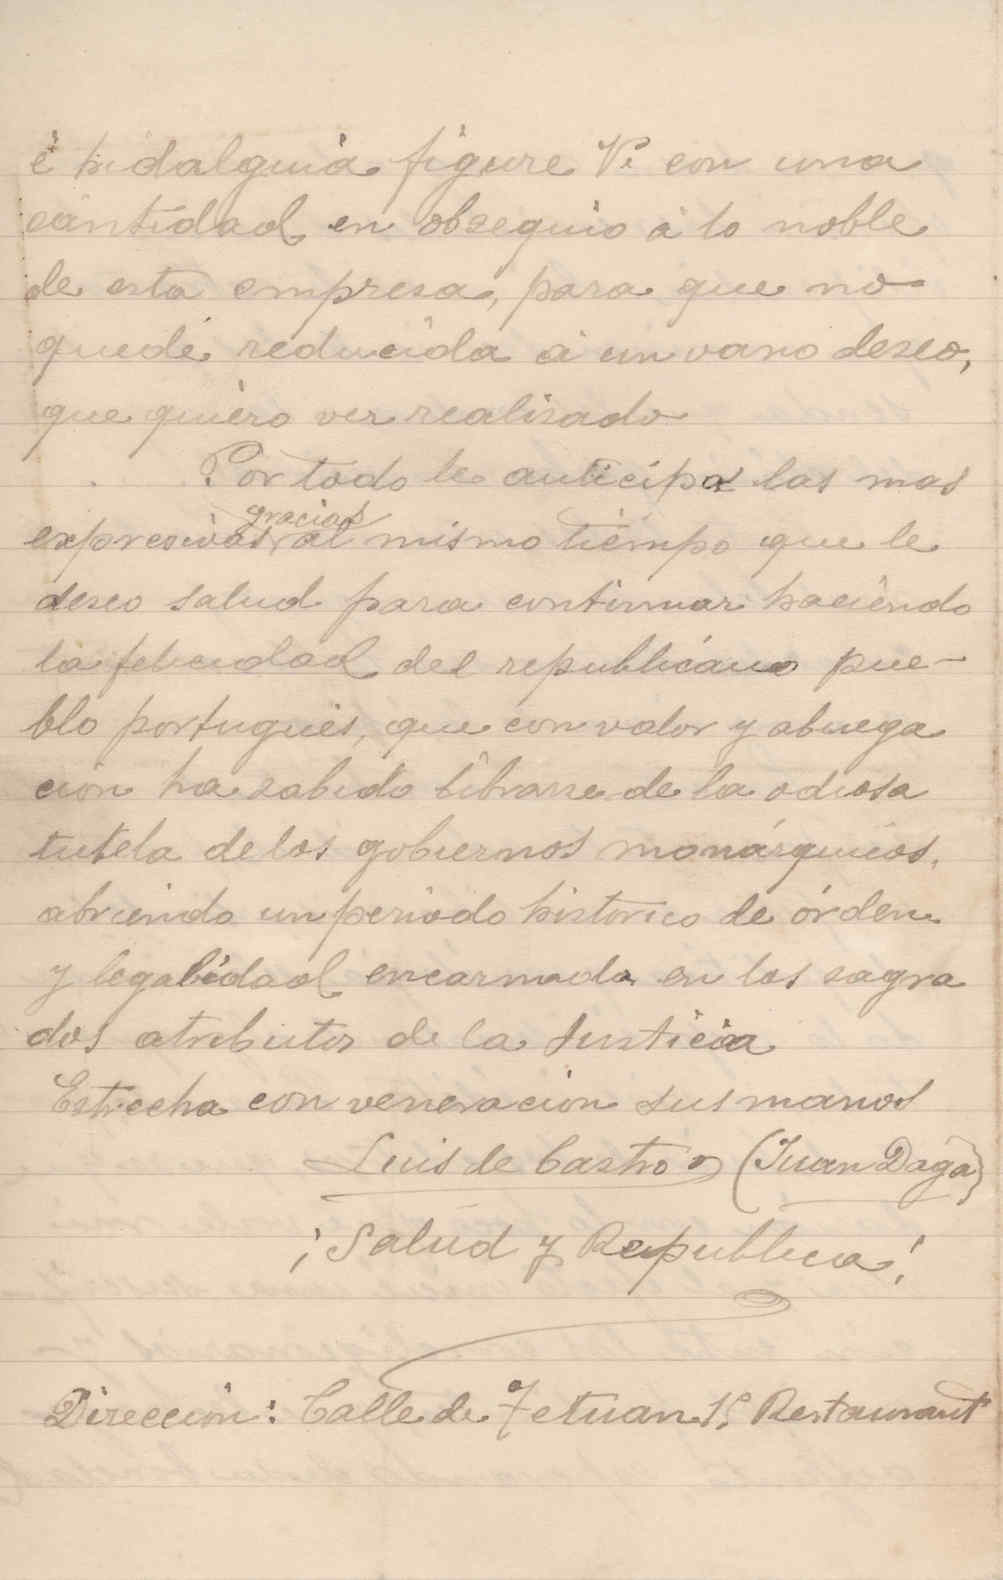 é hidalguia figure V. con una
cantidad en obsequio á lo noble
de esta empresa, para que no
quede reducida á un vano deseo,
que quiero ver realisado
Por todo le anticipa las mas
expresivas gracias al mismo tiempo que le
deseo salud para continuar haciendo
la felicidad del republicano pue-
blo portugués, que con valor y abnega
cion ha sabido librarse de la odiosa
tutela de los gobiernos monárquicos,
abriendo un periodo historico de órden
y legalidad encarnada en los sagra
dos atributos de la Justicia
Estrecha con veneracion sus manos
Luis de Castro (Juan Daga)
¡Salud y Republica!
Direccion: Calle de Tetuan 15 Restaurant